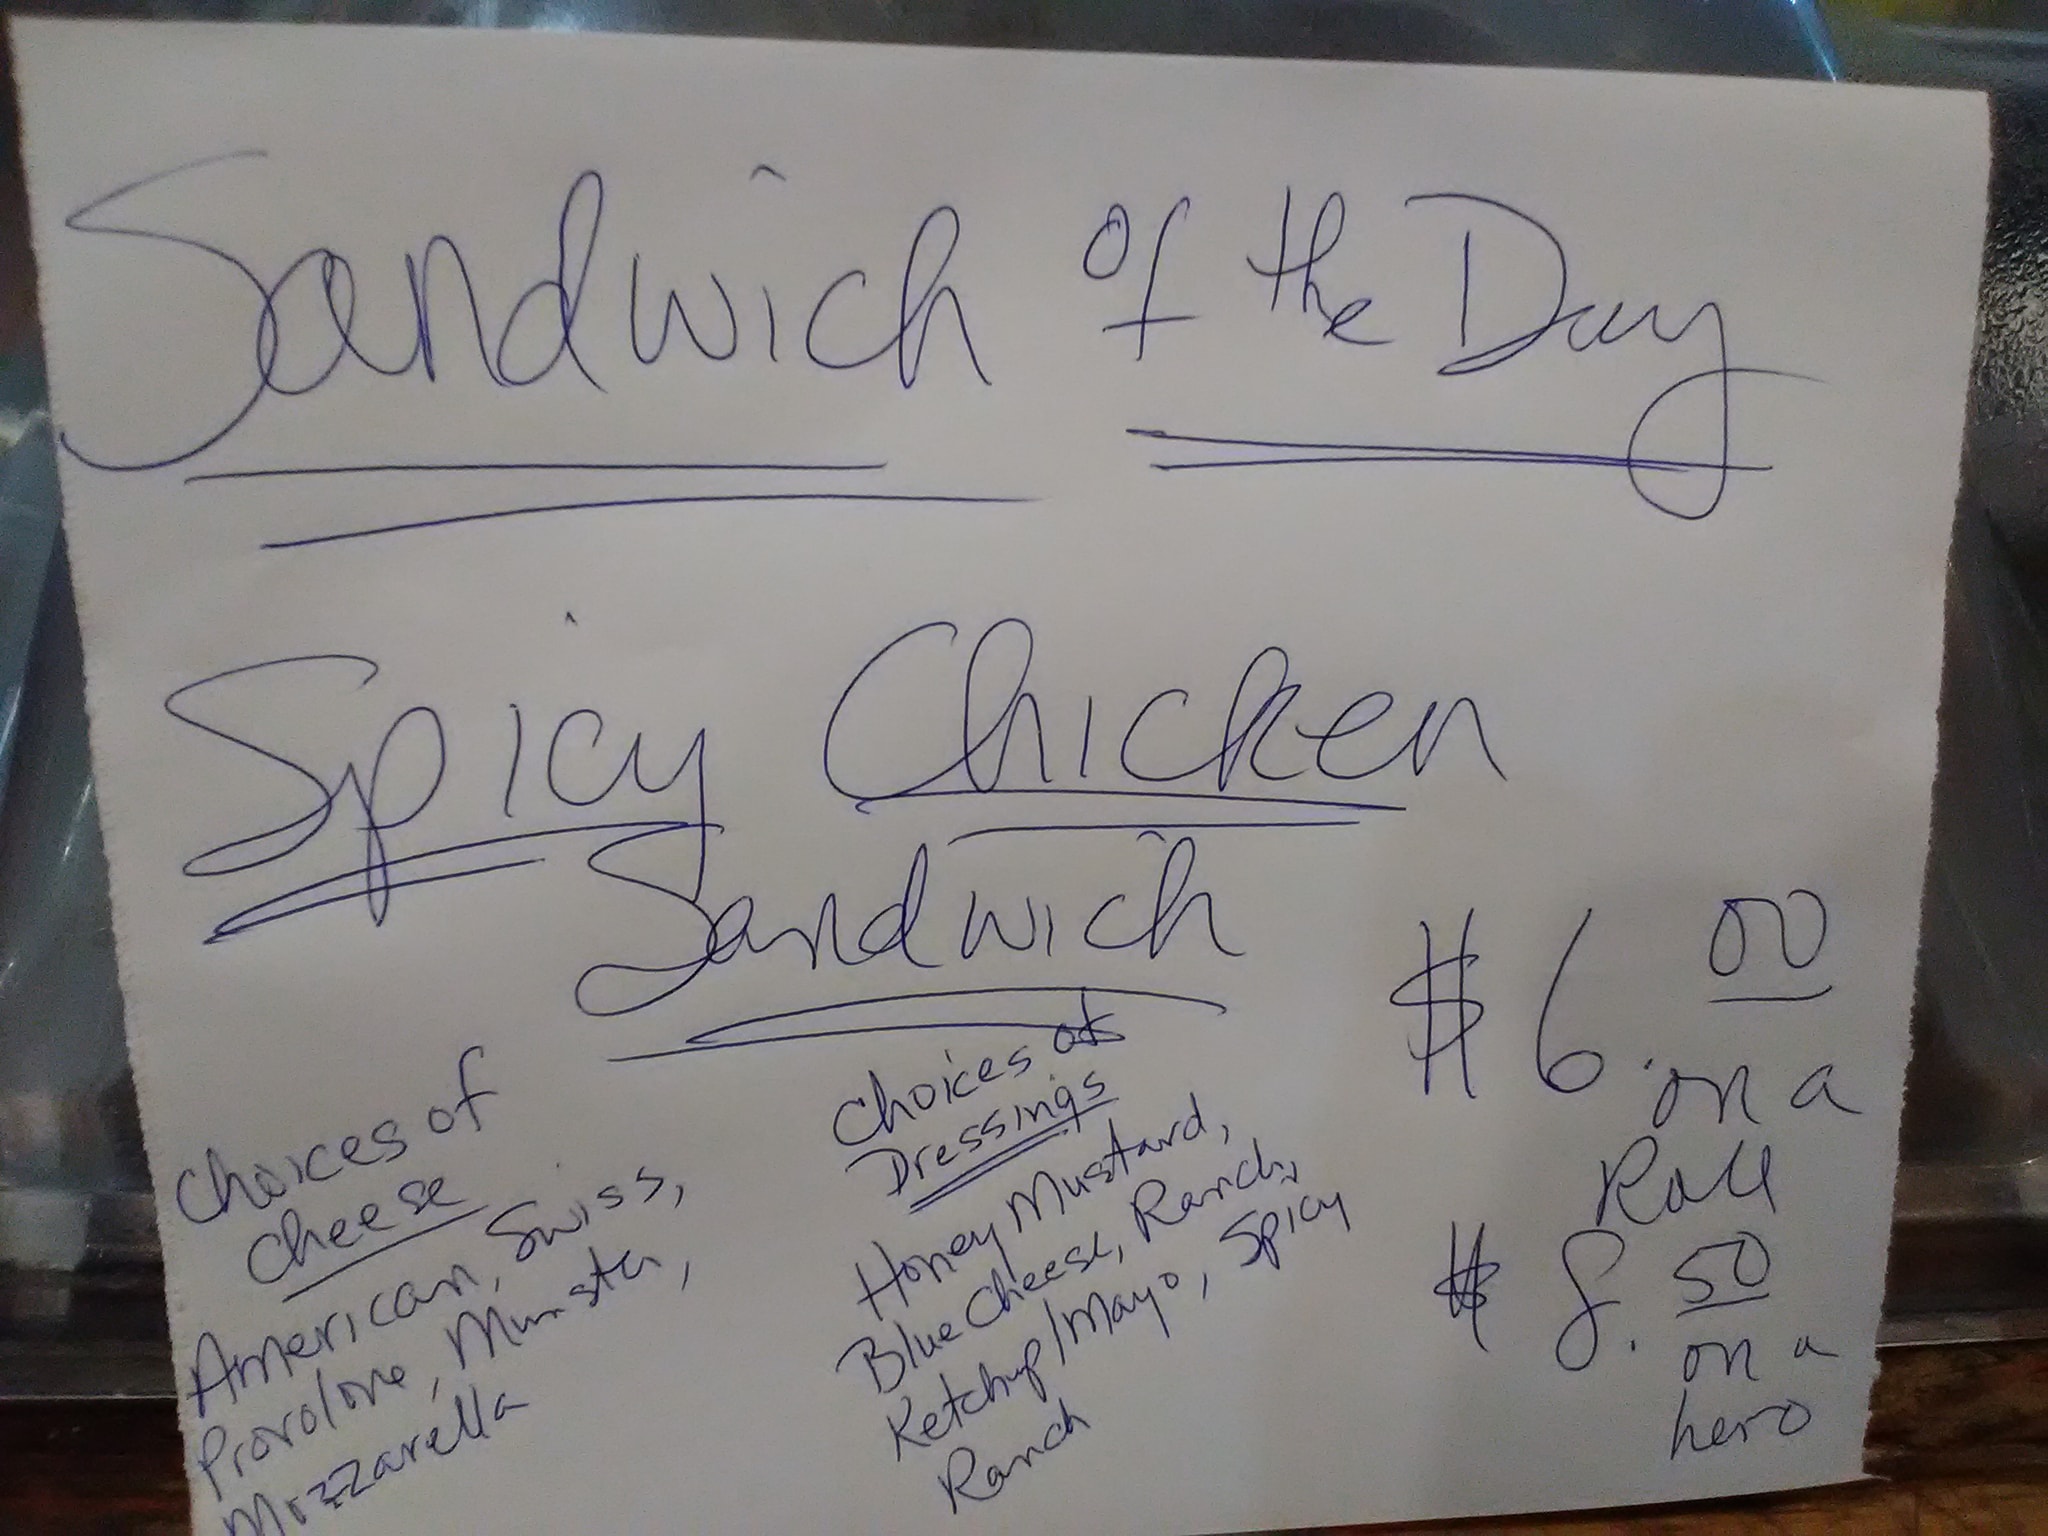 Sandwich of the Day
Spicy Chicken
Sandwich
Choices of
cheese
American, Swiss,
Provolone, Munster,
Mozzarella
Choices of
Dressings
Honey Mustard,
Blue Cheese, Ranch,
Ketchup/Mayo, Spicy
Ranch
$6.00
on a
Roll
$8.50
on a
hero